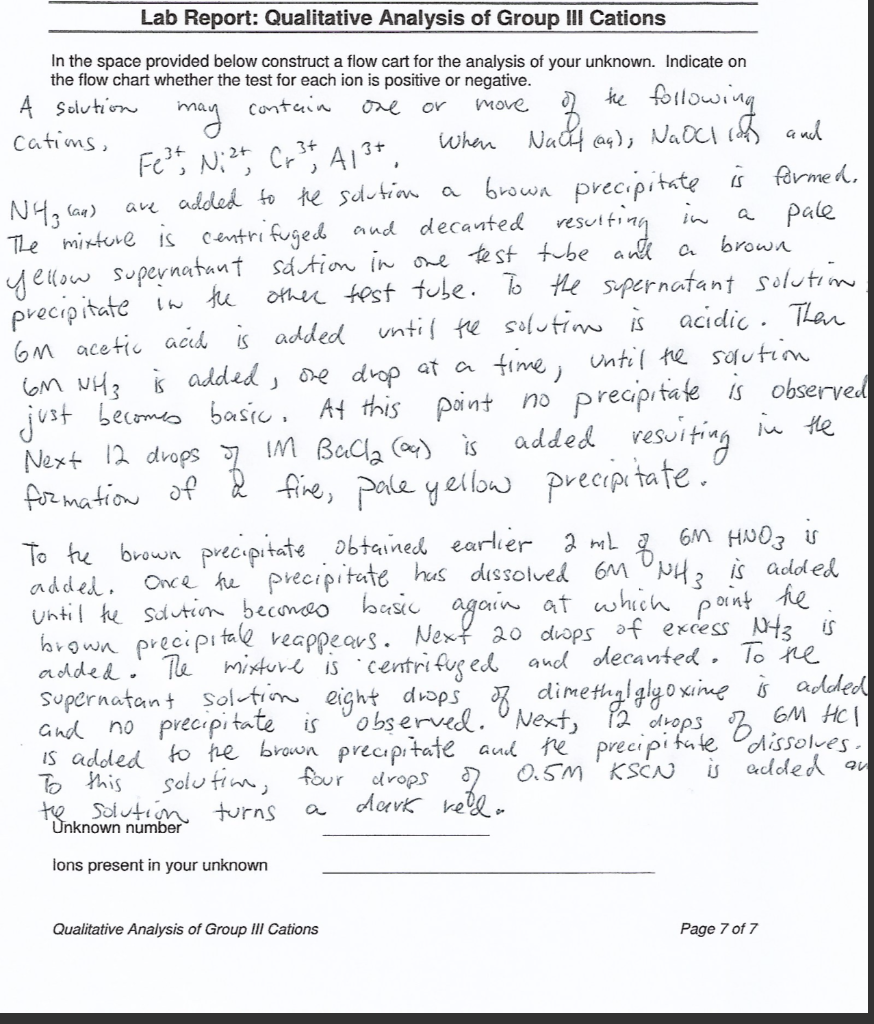 Lab Report: Qualitative Analysis of Group III Cations
In the space provided below construct a flow cart for the analysis of your unknown. Indicate on
the flow chart whether the test for each ion is positive or negative.
A solution may contain one or more of the following
cations, Fe³⁺, Ni²⁺, Cr³⁺, Al³⁺. When NaOH (aq), NaOCl (aq) and
NH₃ (aq) are added to the solution a brown precipitate is formed.
The mixture is centrifuged and decanted resulting in a pale
yellow supernatant solution in one test tube and a brown
precipitate in the other test tube. To the supernatant solution
6M acetic acid is added until the solution is acidic. Then
6M NH₃ is added, one drop at a time, until the solution
just becomes basic. At this point no precipitate is observed
Next 12 drops of 1M BaCl₂ (aq) is added resulting in the
formation of a fine, pale yellow precipitate.
To the brown precipitate obtained earlier 2 mL of 6M HNO₃ is
added. Once the precipitate has dissolved 6M NH₃ is added
until the solution becomes basic again at which point the
brown precipitate reappears. Next 20 drops of excess NH₃ is
added. The mixture is centrifuged and decanted. To the
supernatant solution eight drops of dimethylglyoxime is added
and no precipitate is observed. Next, 12 drops of 6M HCl
is added to the brown precipitate and the precipitate dissolves.
To this solution, four drops of 0.5M KSCN is added an
the solution turns a dark red.
Unknown number
Ions present in your unknown
Qualitative Analysis of Group III Cations Page 7 of 7